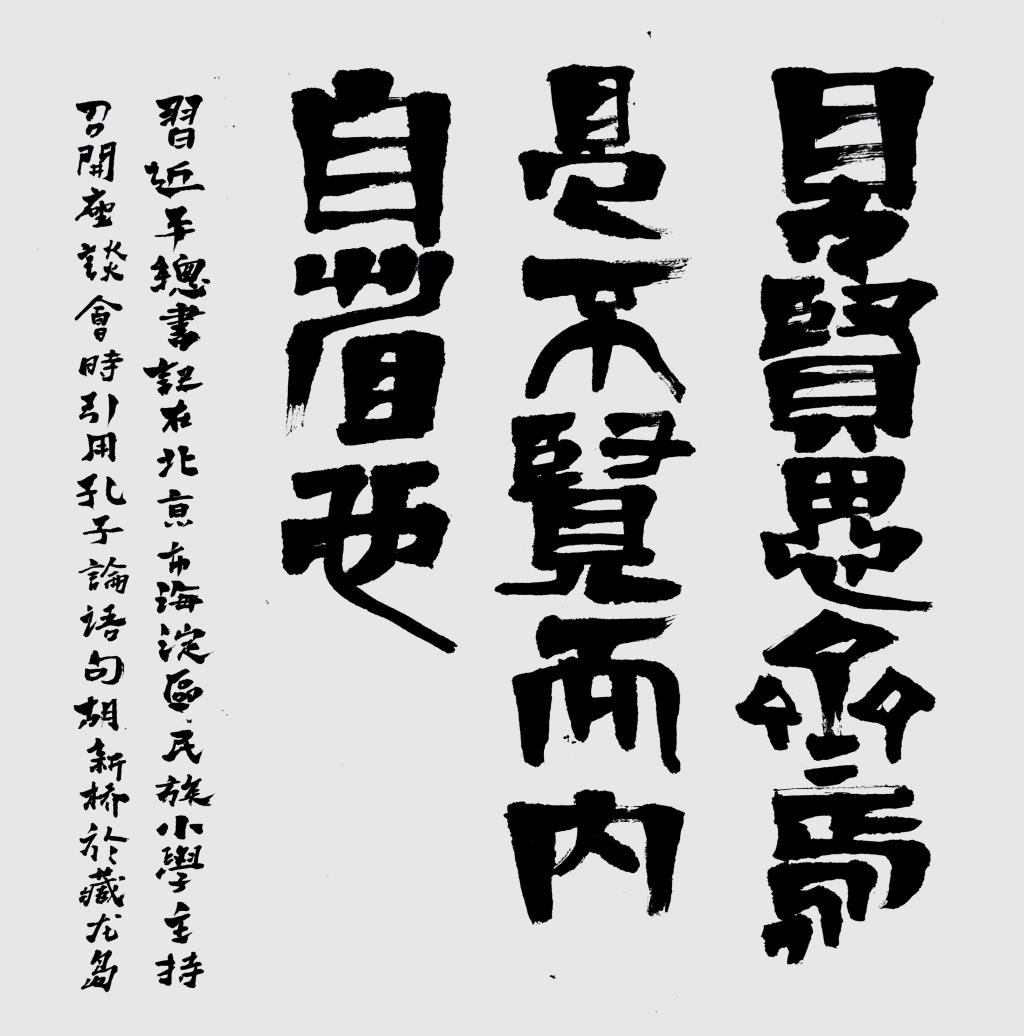 見賢思齊焉
見不賢而内
自省也
習近平總書記在北京市海淀區民族小學主持
召開座談會時引用孔子論語句胡新桥於藏龙島